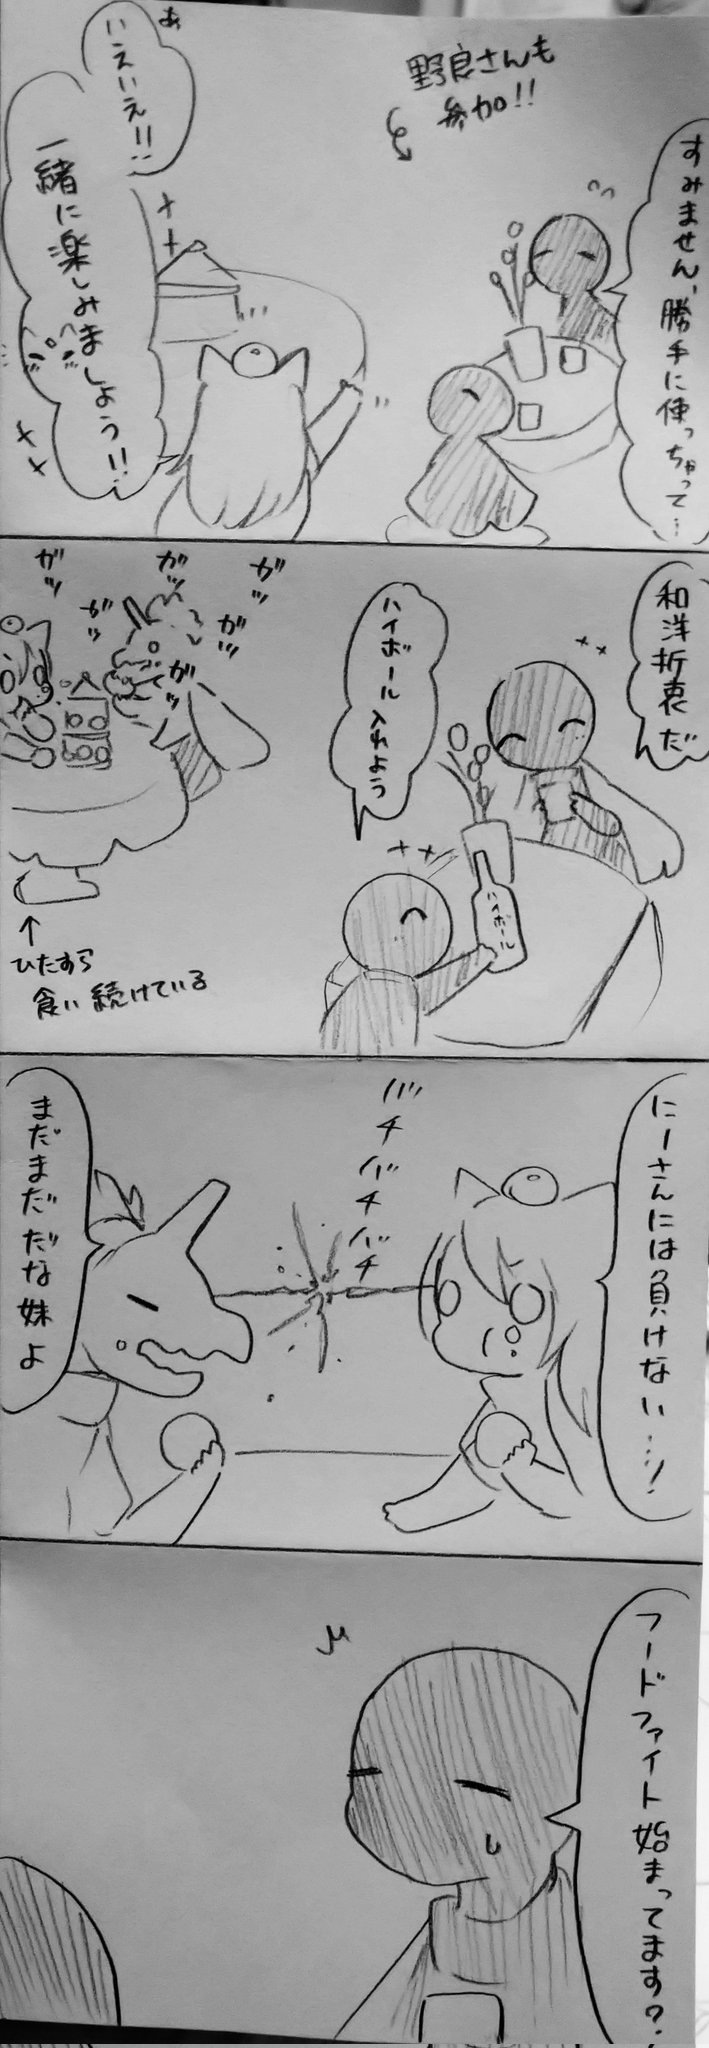 すみません、勝手に使っちゃって…
野良さんも
参加!!
あ
いえいえ!!
一緒に楽しみましょう!!
和洋折衷だ
ハイボール入れよう
ハイボール
ガッ
ガッ
ガッ
ガッ
ガッ
ガッ
ひたすら
食い続けている
にーさんには負けない…!
バチバチバチ
まだまだだな妹よ
フードファイト始まってます?